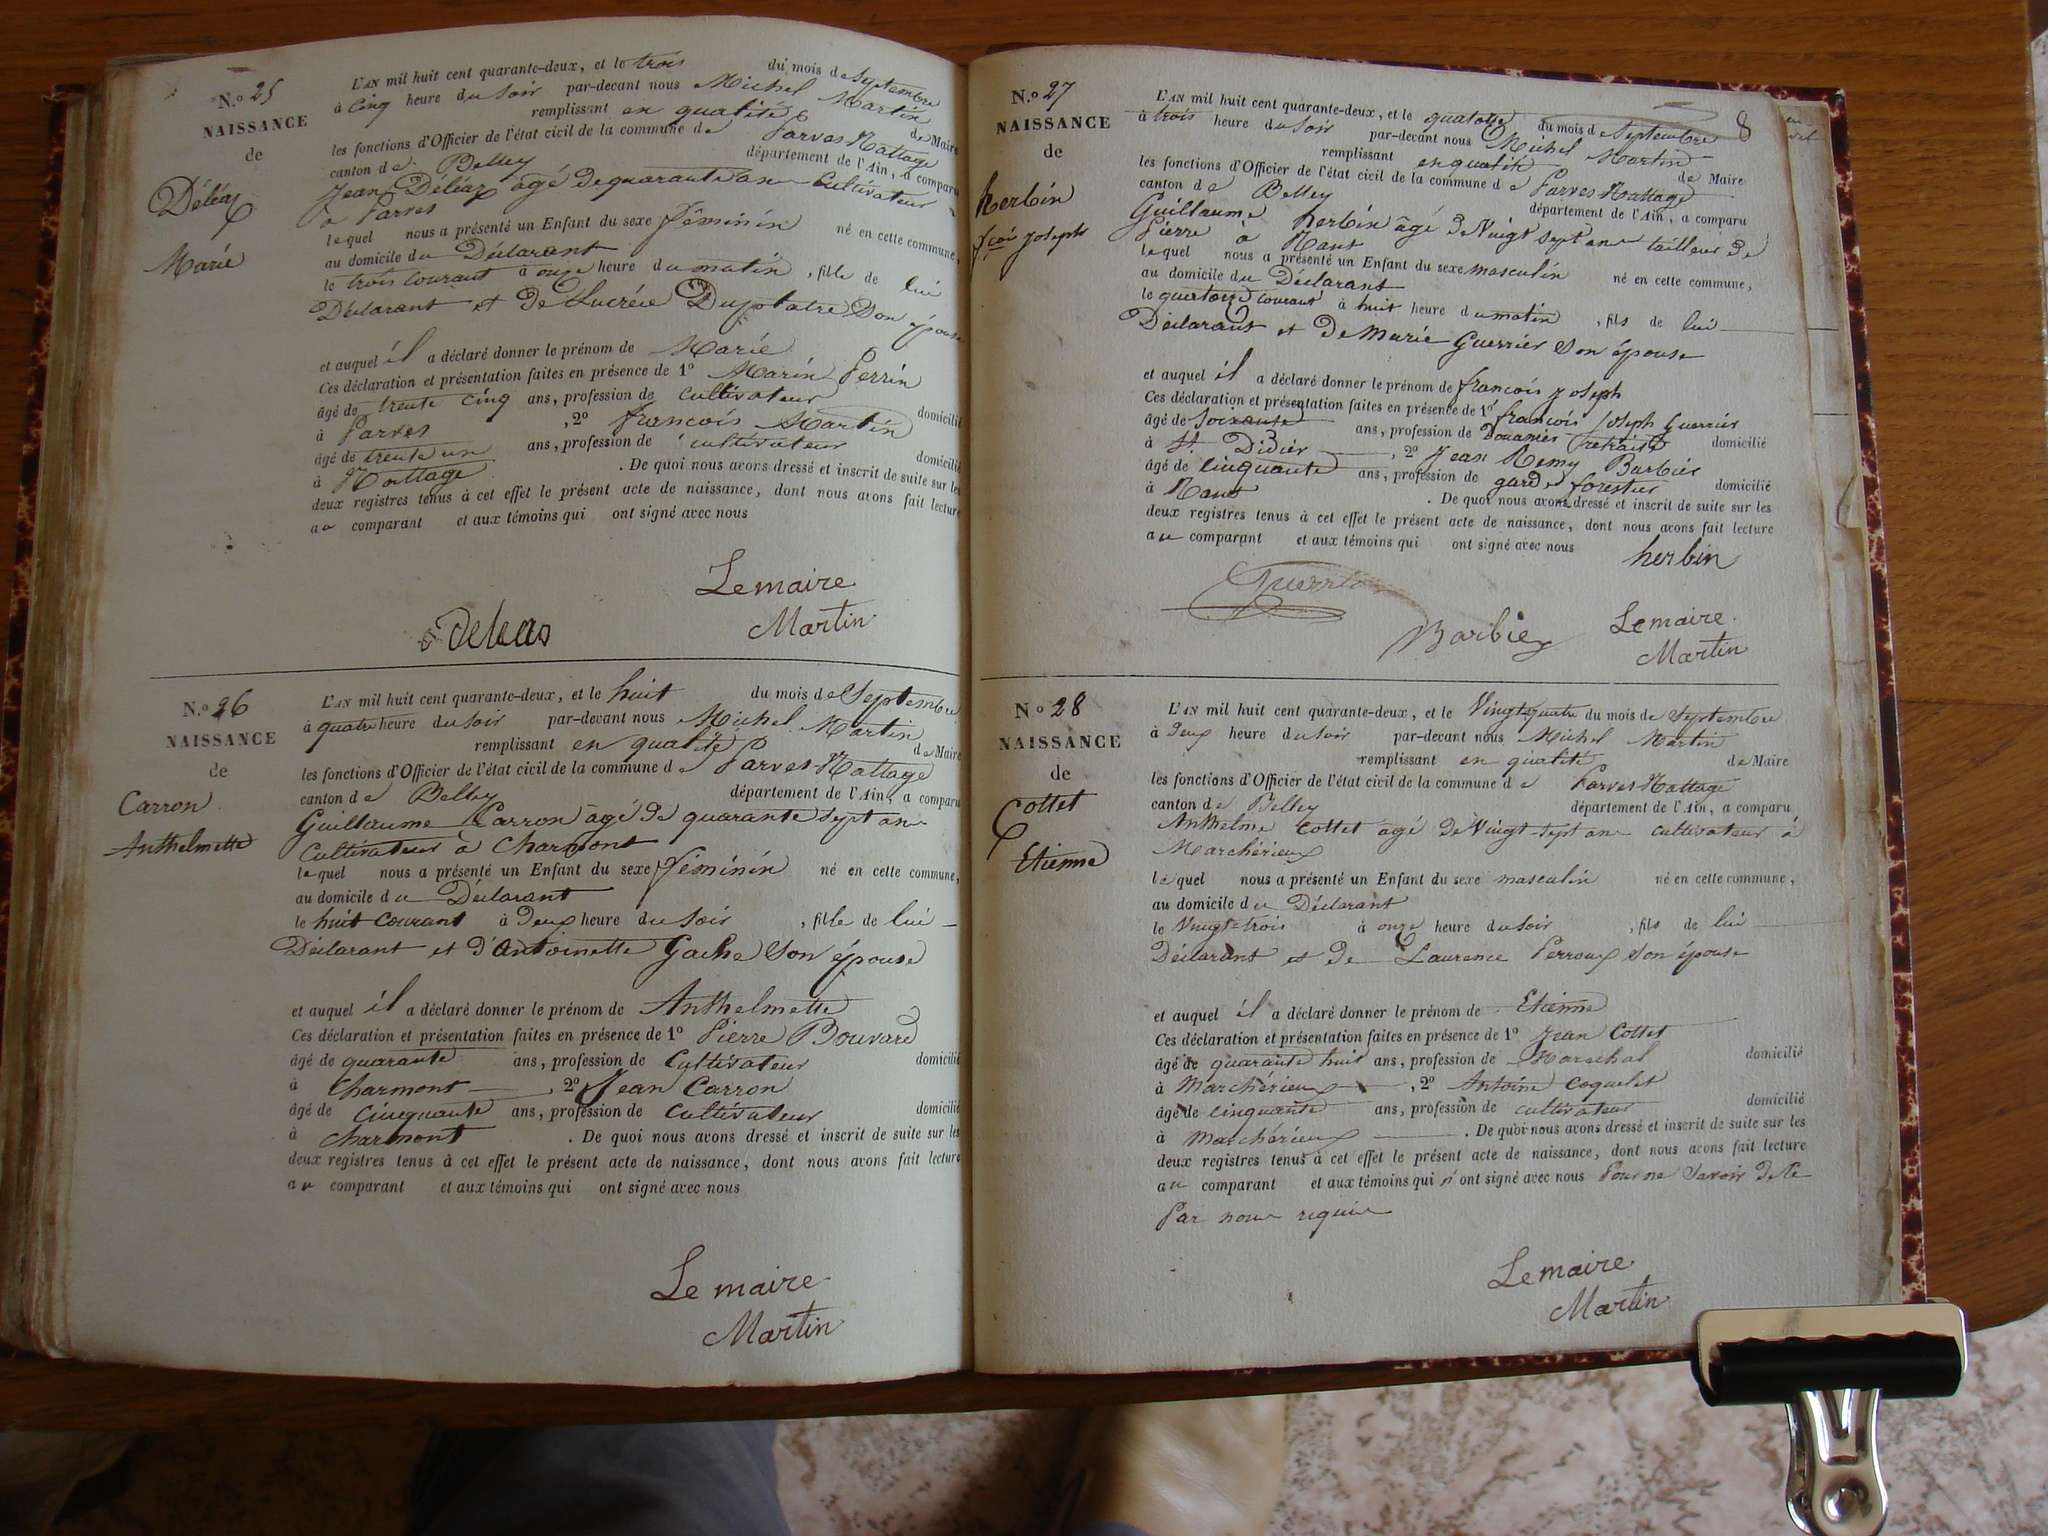 N.o 25
NAISSANCE
de
Déléaz
Marie
L'AN mil huit cent quarante-deux, et le trois du mois de Septembre
à Cinq heure du Soir par-devant nous Michel Martin
remplissant en qualité de Maire
les fonctions d'Officier de l'état civil de la commune de Parves Nattage
canton de Belley département de l'Ain, a comparu
Jean Déléaz âgé de quarante ans Cultivateur
à Parves
lequel nous a présenté un Enfant du sexe Féminin né en cette commune,
au domicile du Déclarant
le trois Courant à onze heure du matin, fille de lui
Déclarant et de Lucrèce Duplatre Son épouse
et auquel il a déclaré donner le prénom de Marie
Ces déclaration et présentation faites en présence de 1o Marin Perrin
âgé de trente Cinq ans, profession de Cultivateur domicilié
à Parves, 2o francois Martin
âgé de trente un ans, profession de cultivateur domicilié
à Nattage. De quoi nous avons dressé et inscrit de suite sur les
deux registres tenus à cet effet le présent acte de naissance, dont nous avons fait lecture
au comparant et aux témoins qui ont signé avec nous
Lemaire
Martin
N.o 26
NAISSANCE
de
Carron
Anthelmette
L'AN mil huit cent quarante-deux, et le huit du mois de Septembre
à quatre heure du Soir par-devant nous Michel Martin
remplissant en qualité de Maire
les fonctions d'Officier de l'état civil de la commune de Parves-Nattage
canton de Belley département de l'Ain, a comparu
Guillaume Carron âgé de quarante Sept ans
Cultivateur à Charmont
lequel nous a présenté un Enfant du sexe Féminin né en cette commune,
au domicile du Déclarant
le huit Courant à Deux heure du Soir, fille de lui
Déclarant et d'Antoinette Gache Son épouse
et auquel il a déclaré donner le prénom de Anthelmette
Ces déclaration et présentation faites en présence de 1o Pierre Bouvard
âgé de quarante ans, profession de Cultivateur domicilié
à Charmont, 2o Jean Carron
âgé de Cinquante ans, profession de Cultivateur domicilié
à Charmont. De quoi nous avons dressé et inscrit de suite sur les
deux registres tenus à cet effet le présent acte de naissance, dont nous avons fait lecture
au comparant et aux témoins qui ont signé avec nous
Le maire
Martin
8
N.o 27
NAISSANCE
de
herbin
fcois joseph
L'AN mil huit cent quarante-deux, et le quatorze du mois de Septembre
à trois heure du Soir par-devant nous Michel Martin
remplissant en qualité de Maire
les fonctions d'Officier de l'état civil de la commune de Parves-Nattage
canton de Belley département de l'Ain, a comparu
Guillaume herbin âgé de Vingt Sept ans tailleur de
Pierre à Nant
lequel nous a présenté un Enfant du sexe masculin né en cette commune,
au domicile du Déclarant
le quatorze courant à huit heure du matin, fils de lui
Déclarant et de Marie Guerrier Son épouse
et auquel il a déclaré donner le prénom de francois joseph
Ces déclaration et présentation faites en présence de 1o francois joseph Guerrier
âgé de Soixante ans, profession de Douanier retraité domicilié
à St. Didier, 2o Jean Remy Barbier
âgé de Cinquante ans, profession de garde forestier domicilié
à Nant. De quoi nous avons dressé et inscrit de suite sur les
deux registres tenus à cet effet le présent acte de naissance, dont nous avons fait lecture
au comparant et aux témoins qui ont signé avec nous
herbin
Barbier
Lemaire
Martin
No 28
NAISSANCE
de
Cottet
Etienne
L'AN mil huit cent quarante-deux, et le Vingt-quatre du mois de Septembre
à Deux heure du Soir par-devant nous Michel Martin
remplissant en qualité de Maire
les fonctions d'Officier de l'état civil de la commune de Parves Nattage
canton de Belley département de l'Ain, a comparu
Anthelme Cottet âgé de Vingt-Sept ans cultivateur à
Marchérieux
lequel nous a présenté un Enfant du sexe masculin né en cette commune,
au domicile du Déclarant
le Vingt-trois à onze heure du Soir, fils de lui
Déclarant et de Laurence Perroux Son épouse
et auquel il a déclaré donner le prénom de Etienne
Ces déclaration et présentation faites en présence de 1o Jean Cottet
âgé de quarante huit ans, profession de Marechal domicilié
à Marchérieux, 2o Antoine Coquelet
âgé de Cinquante ans, profession de cultivateur domicilié
à Marchérieux. De quoi nous avons dressé et inscrit de suite sur les
deux registres tenus à cet effet le présent acte de naissance, dont nous avons fait lecture
au comparant et aux témoins qui n'ont signé avec nous Pour ne Savoir de ce
Par nous requis
Lemaire
Martin